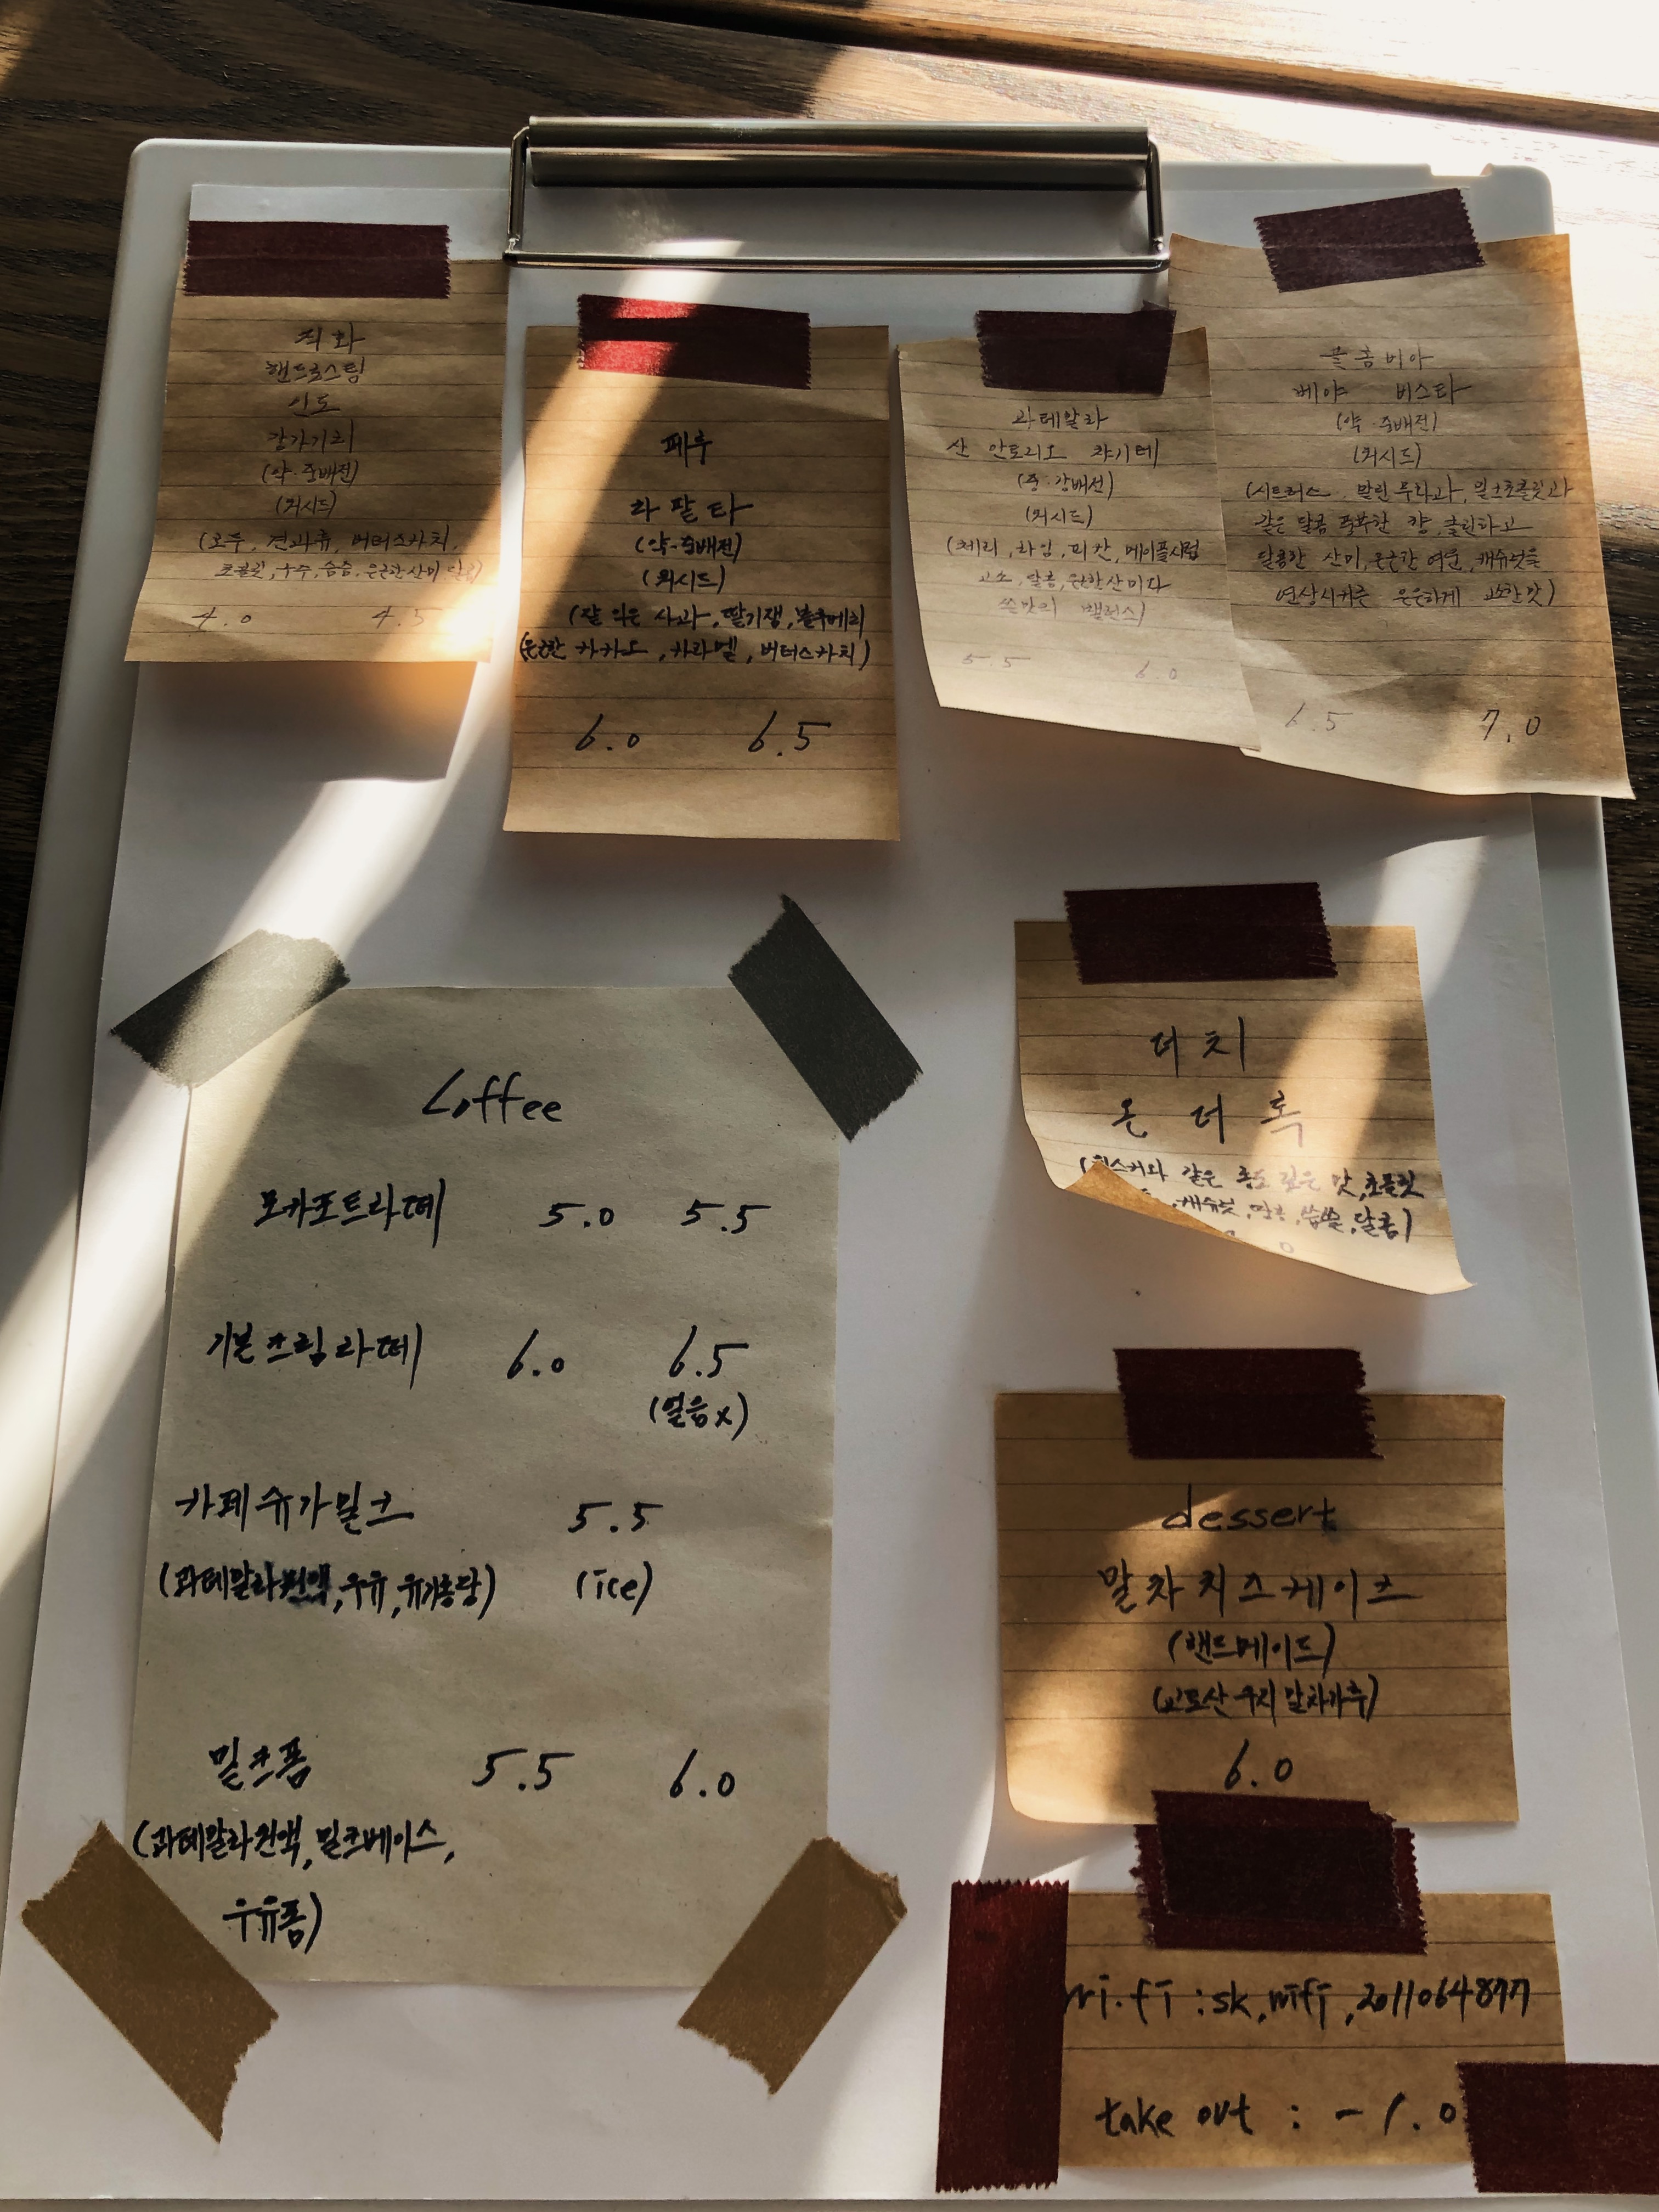 직화
핸드로스팅
인도
강가기리
(약·중배전)
(워시드)
(호두, 견과류, 버터스카치,
초콜릿, 숭숭, 은근한 산미 달콤)
4.0 4.5
페루
라팔타
(약·중배전)
(워시드)
(잘 익은 사과, 딸기잼, 블루베리
(은근한 카카오, 카라멜, 버터스카치)
6.0 6.5
과테말라
산 안토니오 챠기테
(중·강배전)
(워시드)
(체리, 라임, 피칸, 메이플시럽
고소, 달콤, 은근한 산미와
쓴맛의 밸런스)
5.5 6.0
콜롬비아
베야 비스타
(약·중배전)
(워시드)
(시트러스, 말린 무화과, 밀크초콜릿과
같은 달콤 풍부한 향, 클린하고
달콤한 산미, 은근한 여운, 캐슈넛을
연상시키는 은은하게 고소한 맛)
6.5 7.0
Coffee
모카포트라떼 5.0 5.5
기본크림라떼 6.0 6.5
(얼음x)
카페슈가밀크 5.5
(과테말라원액, 우유, 유기농당) (ice)
밀크폼 5.5 6.0
(과테말라원액, 밀크베이스,
우유폼)
더치
온 더 록
(위스키와 같은 농도 깊은 맛, 초콜릿
, 캐슈넛, 쌉쌀, 달콤)
dessert
말차치즈케이크
(핸드메이드)
(교토산 우지 말차가루)
6.0
wi.fi : sk,mifi,2011064877
take out : -1.0